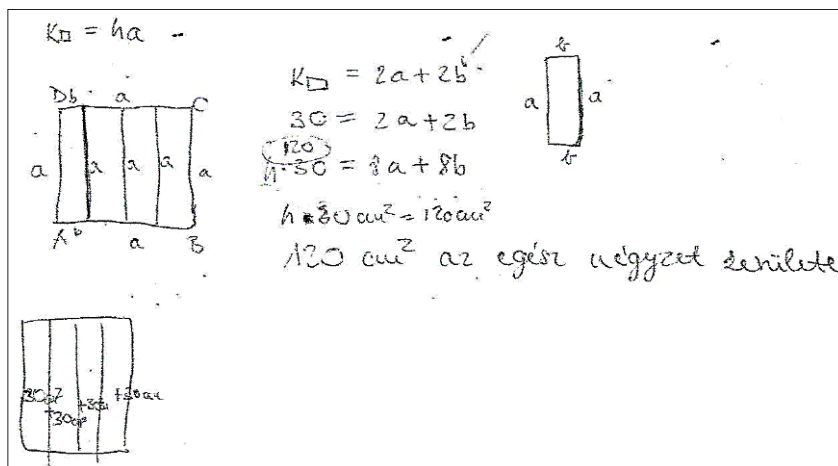 K□ = 4a
Db a C
a a a a a
A b a B
K▭ = 2a + 2b
30 = 2a + 2b
120
4·30 = 8a + 8b
4·30 cm² = 120 cm²
120 cm² az egész négyzet területe
b
a a
b
30cm² +30cm² +30cm +30cm